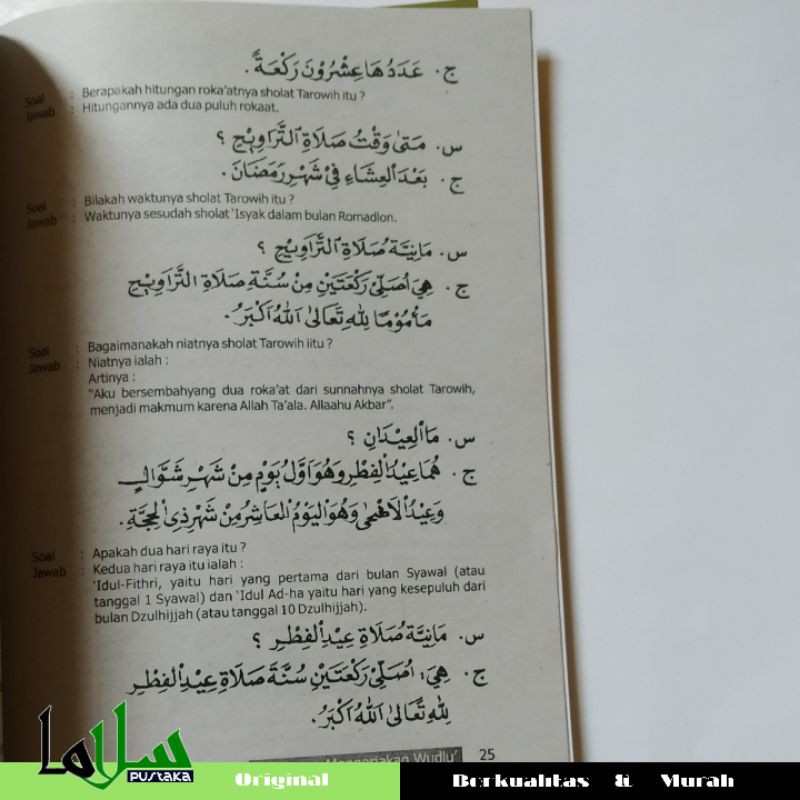 ج. عَدَدُهَا عِشْرُوْنَ رَكْعَةً.
Soal : Berapakah hitungan roka'atnya sholat Tarowih itu ?
Jawab : Hitungannya ada dua puluh rokaat.
س. مَتٰى وَقْتُ صَلَاةِ التَّرَاوِيْحِ ؟
ج. بَعْدَ الْعِشَاءِ فِيْ شَهْرِ رَمَضَانَ.
Soal : Bilakah waktunya sholat Tarowih itu ?
Jawab : Waktunya sesudah sholat 'Isyak dalam bulan Romadlon.
س. مَا نِيَّةُ صَلَاةِ التَّرَاوِيْحِ ؟
ج. هِيَ اُصَلِّيْ رَكْعَتَيْنِ مِنْ سُنَّةِ صَلَاةِ التَّرَاوِيْحِ
مَأْمُوْمًا لِلّٰهِ تَعَالٰى اَللّٰهُ اَكْبَرُ.
Soal : Bagaimanakah niatnya sholat Tarowih iitu ?
Jawab : Niatnya ialah :
Artinya :
"Aku bersembahyang dua roka'at dari sunnahnya sholat Tarowih,
menjadi makmum karena Allah Ta'ala. Allaahu Akbar".
س. مَا الْعِيْدَانِ ؟
ج. هُمَا عِيْدُ الْفِطْرِ وَهُوَ اَوَّلُ يَوْمٍ مِنْ شَهْرِ شَوَّالٍ
وَعِيْدُ الْاَضْحٰى وَهُوَ الْيَوْمُ الْعَاشِرُ مِنْ شَهْرِ ذِى الْحِجَّةِ.
Soal : Apakah dua hari raya itu ?
Jawab : Kedua hari raya itu ialah :
'Idul-Fithri, yaitu hari yang pertama dari bulan Syawal (atau
tanggal 1 Syawal) dan 'Idul Ad-ha yaitu hari yang kesepuluh dari
bulan Dzulhijjah (atau tanggal 10 Dzulhijjah).
س. مَا نِيَّةُ صَلَاةِ عِيْدِ الْفِطْرِ ؟
ج. هِيَ، اُصَلِّيْ رَكْعَتَيْنِ سُنَّةَ صَلَاةِ عِيْدِ الْفِطْرِ
لِلّٰهِ تَعَالٰى اَللّٰهُ اَكْبَرُ.
Mengerjakan Wudlu' 25
سلاما
PUSTAKA
Original
Berkualitas & Murah